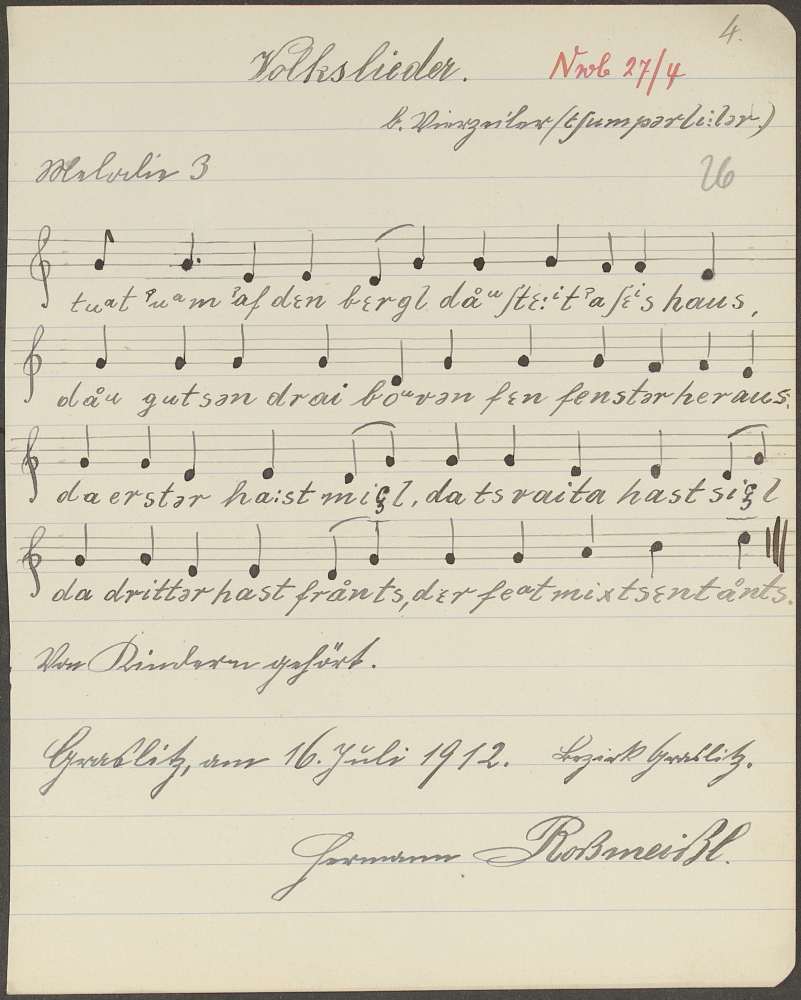 4.
Volkslieder. Nwb 27/4
b. Vierzeiler (tʃumpərli:lər.)
Melodie 3 26
tuat ˀuam ˀaf dɛn bɛrgl dåᵘ ʃtɛ:ⁱt ˀa ʃɛⁱs haus,
dåᵘ gutsən drai boᵘvən fɛn fenstər heraus.
da erstər ha:st miçl, da tsvaita hast siçl
da drittər hast frånts, dɛr feat mixtsɛntånts.
Von Kindern gehört.
Graslitz, am 16. Juli 1912. Bezirk Graslitz.
Hermann Roßmeißl.